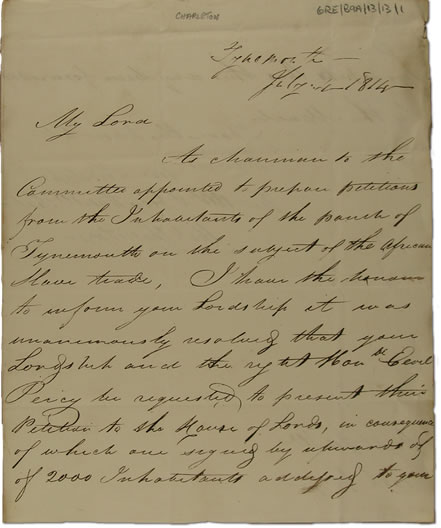 CHARLETON
GRE/B9A/13/13/1
Tynemouth —
July 1814
My Lord
As chairman to the
Committee appointed to prepare petitions
from the Inhabitants of the parish of
Tynemouth on the subject of the African
Slave trade, I have the honour
to inform your Lordship it was
unanimously resolved that your
Lordship and the right Honble
Percy be requested to present their
Petition to the House of Lords, in consequence
of which one signed by upwards of
of 2000 Inhabitants addressed to your